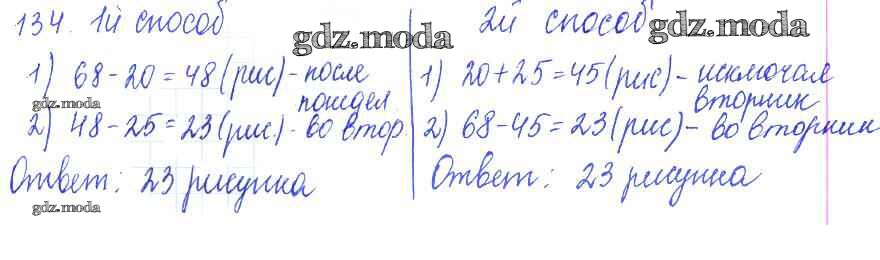 134. 1й способ
gdz.moda
1) 68-20=48(рис)-после
понедел.
gdz.moda
2) 48-25=23(рис.)-во втор.
Ответ: 23 рисунка
gdz.moda
2й способ
gdz.moda
1) 20+25=45(рис)-исключая
вторник
2) 68-45=23(рис)-во вторник
Ответ: 23 рисунка